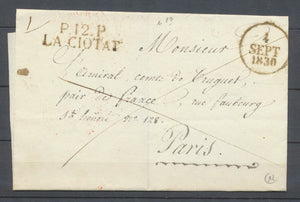 P.12.P
LA CIOTAT
4
SEPT
1830
Monsieur
L'amiral comte de Truguet,
pair de france, rue faubourg
St honoré no 128.
Paris.